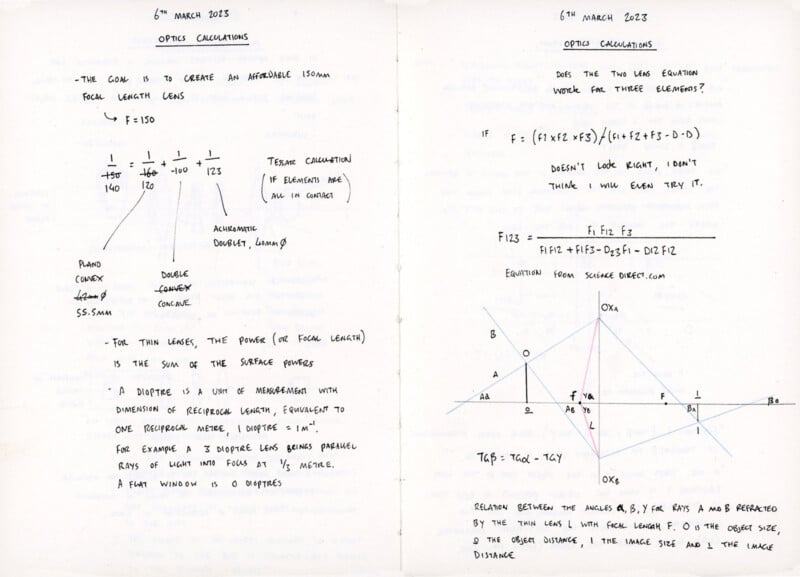 6TH MARCH 2023
OPTICS CALCULATIONS
- THE GOAL IS TO CREATE AN AFFORDABLE 150MM
FOCAL LENGTH LENS
↳ F = 150
1/150 = 1/160 + 1/-100 + 1/123
140 120
TESSAR CALCULATION
(IF ELEMENTS ARE
ALL IN CONTACT)
ACHROMATIC
DOUBLET, 40MM Ø
PLANO
CONVEX
42MM Ø
55.5MM
DOUBLE
CONVEX
CONCAVE
- FOR THIN LENSES, THE POWER (OR FOCAL LENGTH)
IS THE SUM OF THE SURFACE POWERS
- A DIOPTRE IS A UNIT OF MEASUREMENT WITH
DIMENSION OF RECIPROCAL LENGTH, EQUIVALENT TO
ONE RECIPROCAL METRE, 1 DIOPTRE = 1 M⁻¹.
FOR EXAMPLE A 3 DIOPTRE LENS BRINGS PARALLEL
RAYS OF LIGHT INTO FOCUS AT 1/3 METRE.
A FLAT WINDOW IS 0 DIOPTRES
6TH MARCH 2023
OPTICS CALCULATIONS
DOES THE TWO LENS EQUATION
WORK FOR THREE ELEMENTS?
IF F = (F1 x F2 x F3) / (F1 + F2 + F3 - D - D)
DOESN'T LOOK RIGHT, I DON'T
THINK I WILL EVEN TRY IT.
F123 = F1 F12 F3
F1F12 + F1F3 - D23F1 - D12F12
EQUATION FROM SCIENCE DIRECT.COM
OXA
B
O
A
AA
O
F
AB
YA
YB
L
F
I
BA
I
BB
TGβ = TGα - TGY
OXB
RELATION BETWEEN THE ANGLES α, β, Y FOR RAYS A AND B REFRACTED
BY THE THIN LENS L WITH FOCAL LENGTH F. O IS THE OBJECT SIZE,
O THE OBJECT DISTANCE, I THE IMAGE SIZE AND I THE IMAGE
DISTANCE